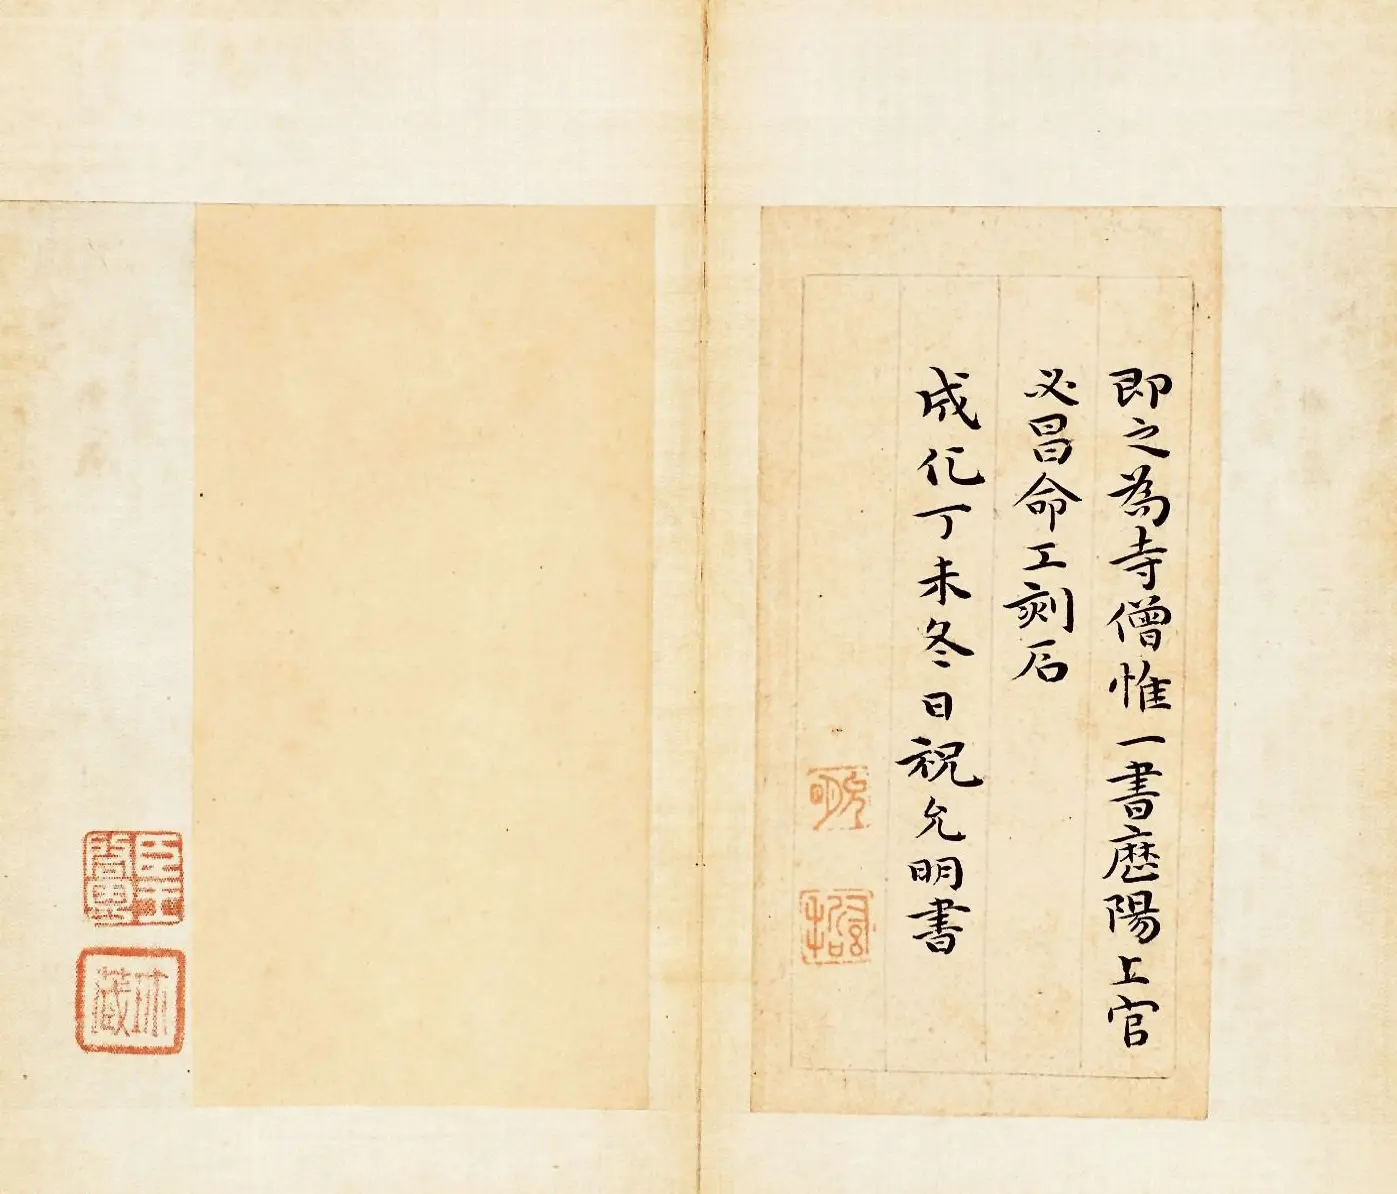 即之為寺僧惟一書歷陽上官
必昌命工刻石
成化丁未冬日祝允明書
允明
珍藏